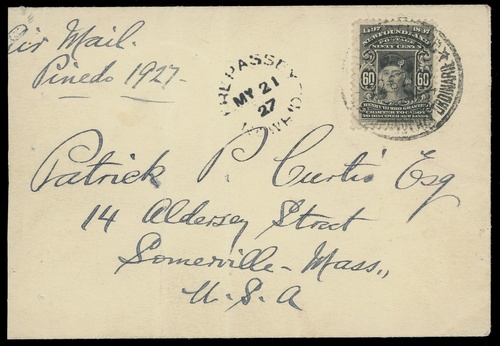 Air Mail.
Pinedo 1927-
TREPASSEY
MY 21
27
1497 1897
NEWFOUNDLAND
POSTAGE
60 60
Patrick P. Curtis Esq
14 Aldersey Street
Somerville - Mass.,
U.S.A